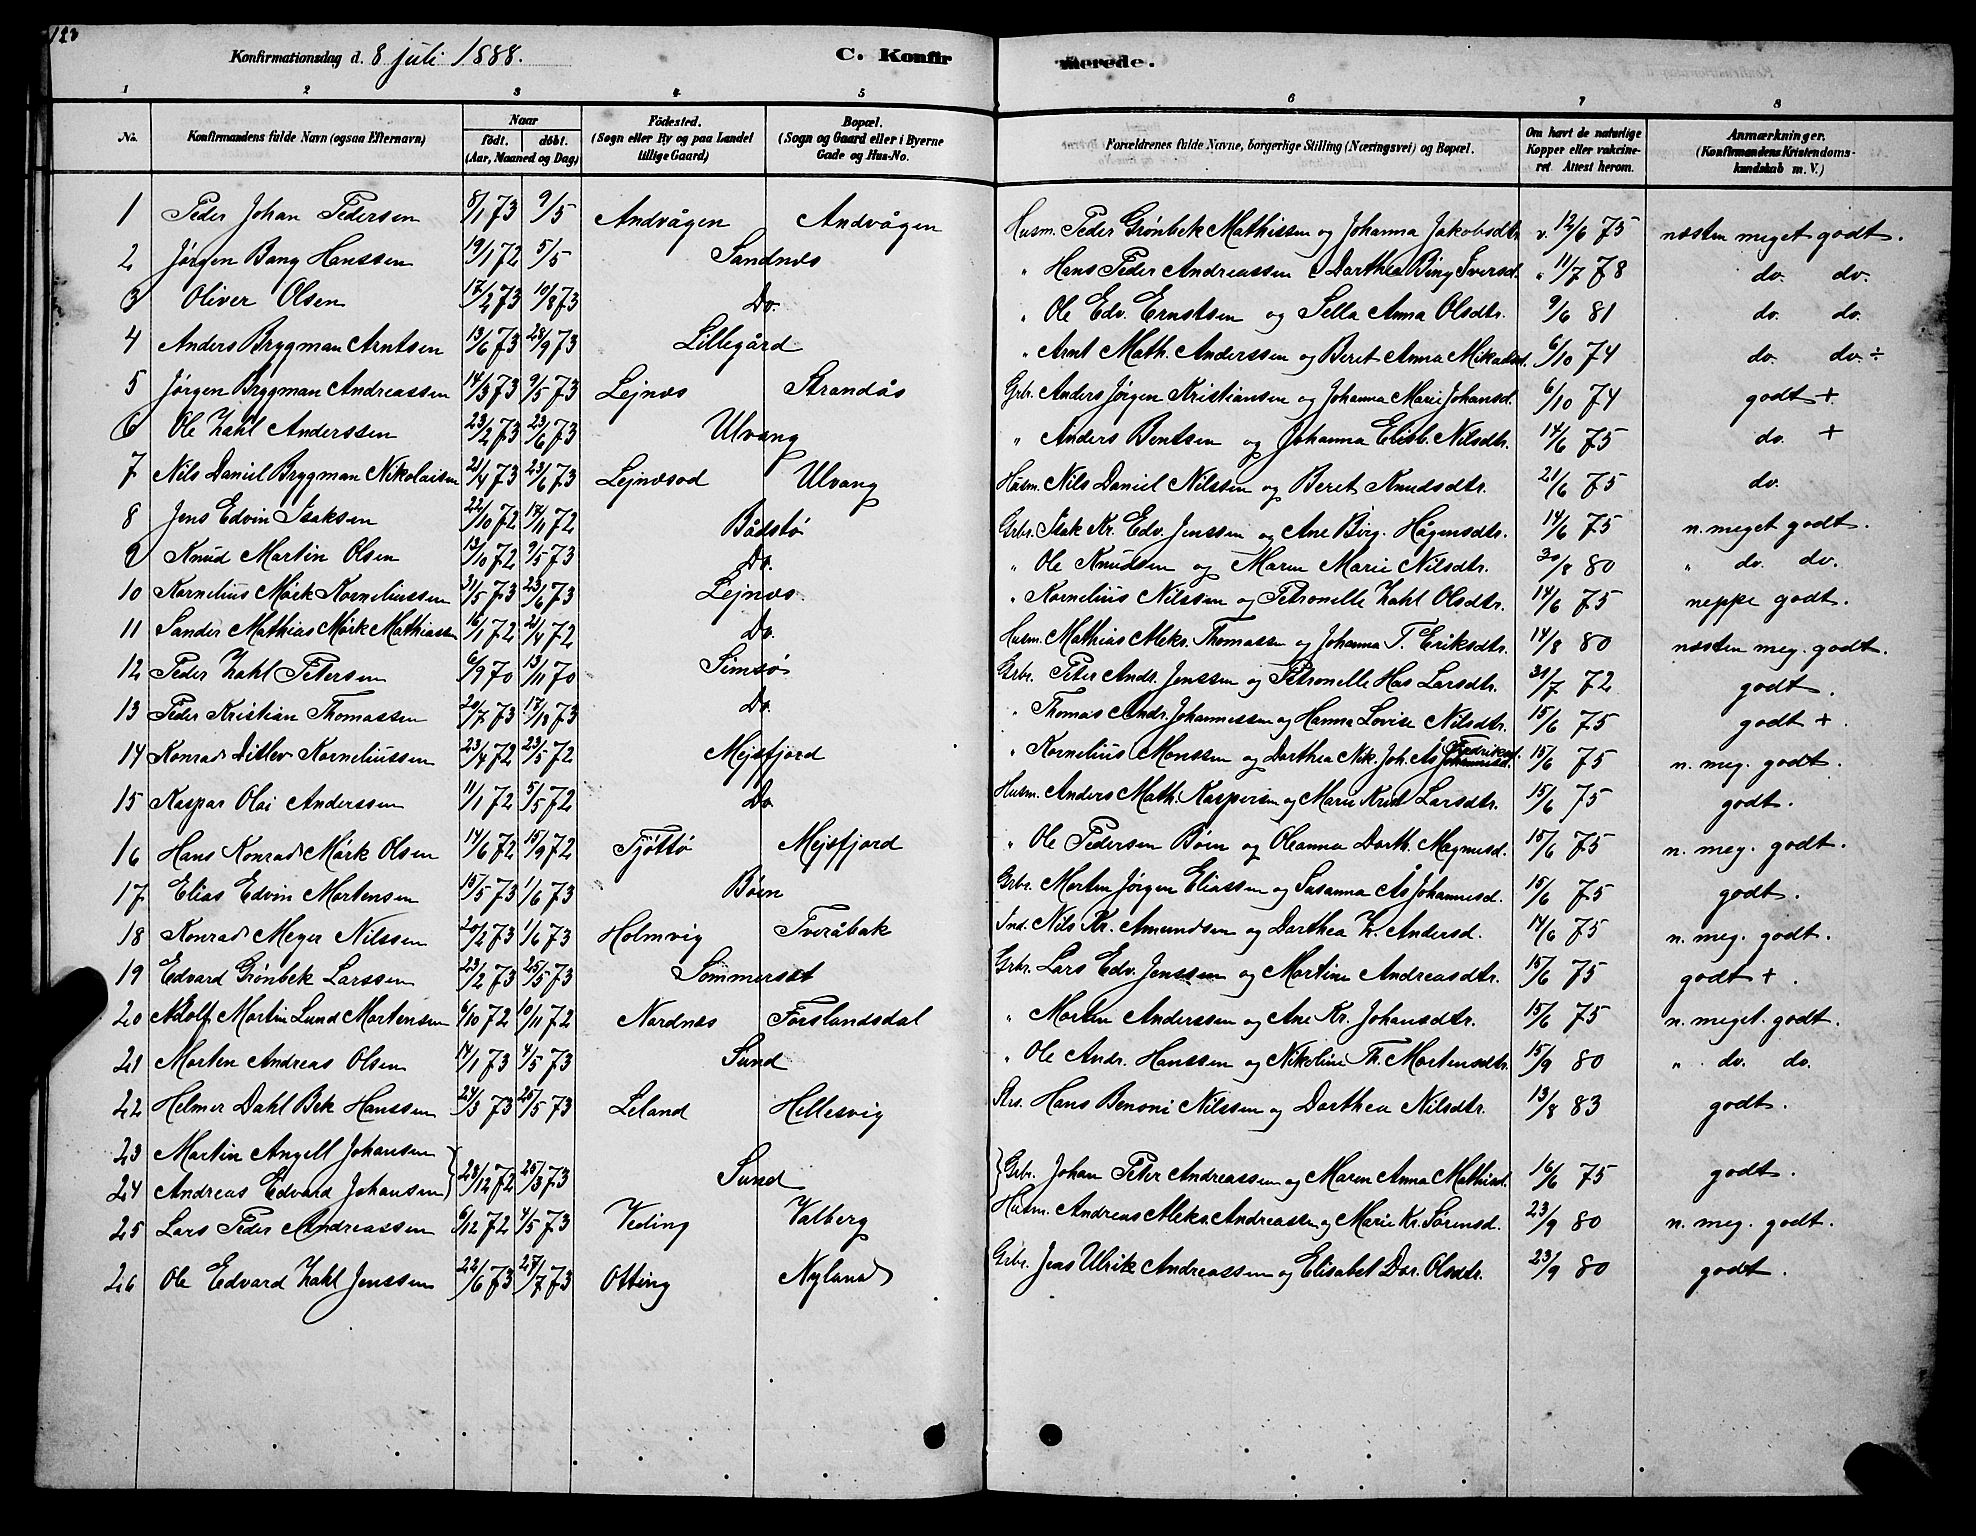 123
Konfirmationsdag d. 8 juli 1888. C. Konfirmerede.
1 2 3 4 5 6 7 8
No. Konfirmandens fulde Navn (ogsaa Efternavn) Naar født. døbt. (Aar, Maaned og Dag) Fødested. (Sogn eller By og paa Landet tillige Gaard) Bopæl. (Sogn og Gaard eller i Byerne Gade og Hus-No. Forældrenes fulde Navne, borgerlige Stilling (Næringsvei) og Bopæl. Om havt de naturlige Kopper eller vakcineret Attest herom. Anmærkninger. (Konfirmandens Kristendomskundskab m. V.)
1 Peder Johan Pedersen 8/1 73 9/5 Andvågen Andvågen Husm. Peder Grønbek Mathissen og Johanna Jakobsdtr. v. 12/6 75 næsten meget godt.
2 Jørgen Bang Hanssen 19/1 72 5/5 Sandnes " Hans Peder Andreassen Darthea Bing Iversd. " 11/7 78 do. do.
3 Oliver Olsen 17/2 73 10/8 73 Do. " Ole Edv. Ernstsen og Sella Anna Olsdtr. 9/6 81 do. do.
4 Anders Brygman Arntsen 13/6 73 28/9 73 Lillegård " Arnt Math. Anderssen og Beret Anna Mikalsd. 6/10 74 do. do. ÷
5 Jørgen Brygman Andreassen 14/3 73 9/5 73 Lejnes Strandås Grbr. Anders Jørgen Kristiansen og Johanna Marie Johansd. 6/10 74 godt +
6 Ole Zahl Anderssen 23/2 73 23/6 73 Ulvang " Anders Bentsen og Johanna Elisb. Nilsdtr. 14/6 75 do. +
7 Nils Daniel Brygman Nikolaisen 21/4 73 23/6 73 Lejnesod Ulvang Husm. Nils Daniel Nilssen og Beret Knudsdtr. 21/6 75 do.
8 Jens Edvin Isaksen 22/10 72 17/11 72 Bådstø Grbr. Isak Kr. Edv. Jenssen og Ane Birg. Hågensdtr. 14/6 75 n. meget godt.
9 Knud Martin Olsen 13/10 72 9/5 73 Do. " Ole Knudsen og Maren Marie Nilsdtr. 30/8 80 " do. do.
10 Kornelius Mørk Korneliussen 31/5 73 23/6 73 Lejnes. " Kornelius Nilssen og Petronelle Zahl Olsdtr. 14/6 75 neppe godt.
11 Sander Mathias Mørk Mathiassen 16/1 72 21/4 72 Do. Husm. Mathias Aleks. Thomassen og Johanna T. Eriksdtr. 14/8 80 næsten meg. godt.
12 Peder Zahl Petersen 6/9 70 13/11 70 Simsø Grbr. Peter Andr. Jenssen og Petronelle Has Larsdtr. 31/7 72 godt.
13 Peder Kristian Thomassen 20/7 73 17/8 73 Do. " Thomas Andr. Johannessen og Hanna Lovise Nilsdtr. 15/6 75 godt +
14 Konrad Ditlev Korneliussen 23/4 72 23/5 72 Mejsfjord " Kornelius Monssen og Darthea Nik. Joh. Ås Fredriksd. 15/6 75 n. meg. godt.
15 Kaspar Olai Anderssen 11/1 72 5/5 72 Do Husm. Anders Math. Kaspersen og Marie Krist Larsdtr. 15/6 75 godt.
16 Hans Konrad Mørk Olsen 14/6 72 15/9 72 Tjøttø Mejsfjord " Ole Pedersen Bøen og Oleanna Dorth. Magnusd. 15/6 75 n. meg. godt.
17 Elias Edvin Mortensen 15/5 73 1/6 73 Bøen Grbr. Morten Jørgen Eliassen og Susanna Ås Johannesd. 15/6 75 godt.
18 Konrad Meyer Nilssen 20/2 73 1/6 73 Holmvig Tveråbak Ind. Nils Kr. Amundsen og Darthea Z. Andersd. 14/6 75 n. meg. godt.
19 Edvard Grønbek Larssen 23/2 73 25/5 73 Sommerset Grbr. Lars Edv. Jenssen og Martine Andreasdtr. 15/6 75 godt + .
20 Adolf Martin Lund Mortensen 6/10 72 10/11 72 Nordnes Forslandsdal " Morten Anderssen og Ane Kr. Johansdtr. 15/6 75 n. meget. godt.
21 Morten Andreas Olsen 14/1 73 4/5 73 Sund " Ole Andr. Hanssen og Nikoline Th. Mortensdtr. 15/9 80 " do. do.
22 Helmer Dahl Bek Hanssen 24/3 73 25/5 73 Leland Hellesvig Strs. Hans Benoni Nilssen og Dorthea Nilsdtr. 13/8 83 godt.
23 Martin Angell Johansen
24 Andreas Edvard Johansen } 23/12 72 25/3 73 Sund } Grbr. Johan Peter Andreassen og Maren Anna Mathisd. 16/6 75 godt.
25 Lars Peder Andreassen 6/12 72 4/5 73 Veding Valberg Husm. Andreas Aleks. Andreassen og Marie Kr. Sørensd. 23/9 80 n. meg. godt.
26 Ole Edvard Zahl Jenssen 22/6 73 27/7 73 Otting Nyland Grbr. Jens Ulrik Andreassen og Elisabet Dor. Olsdtr. 23/9 80 godt.